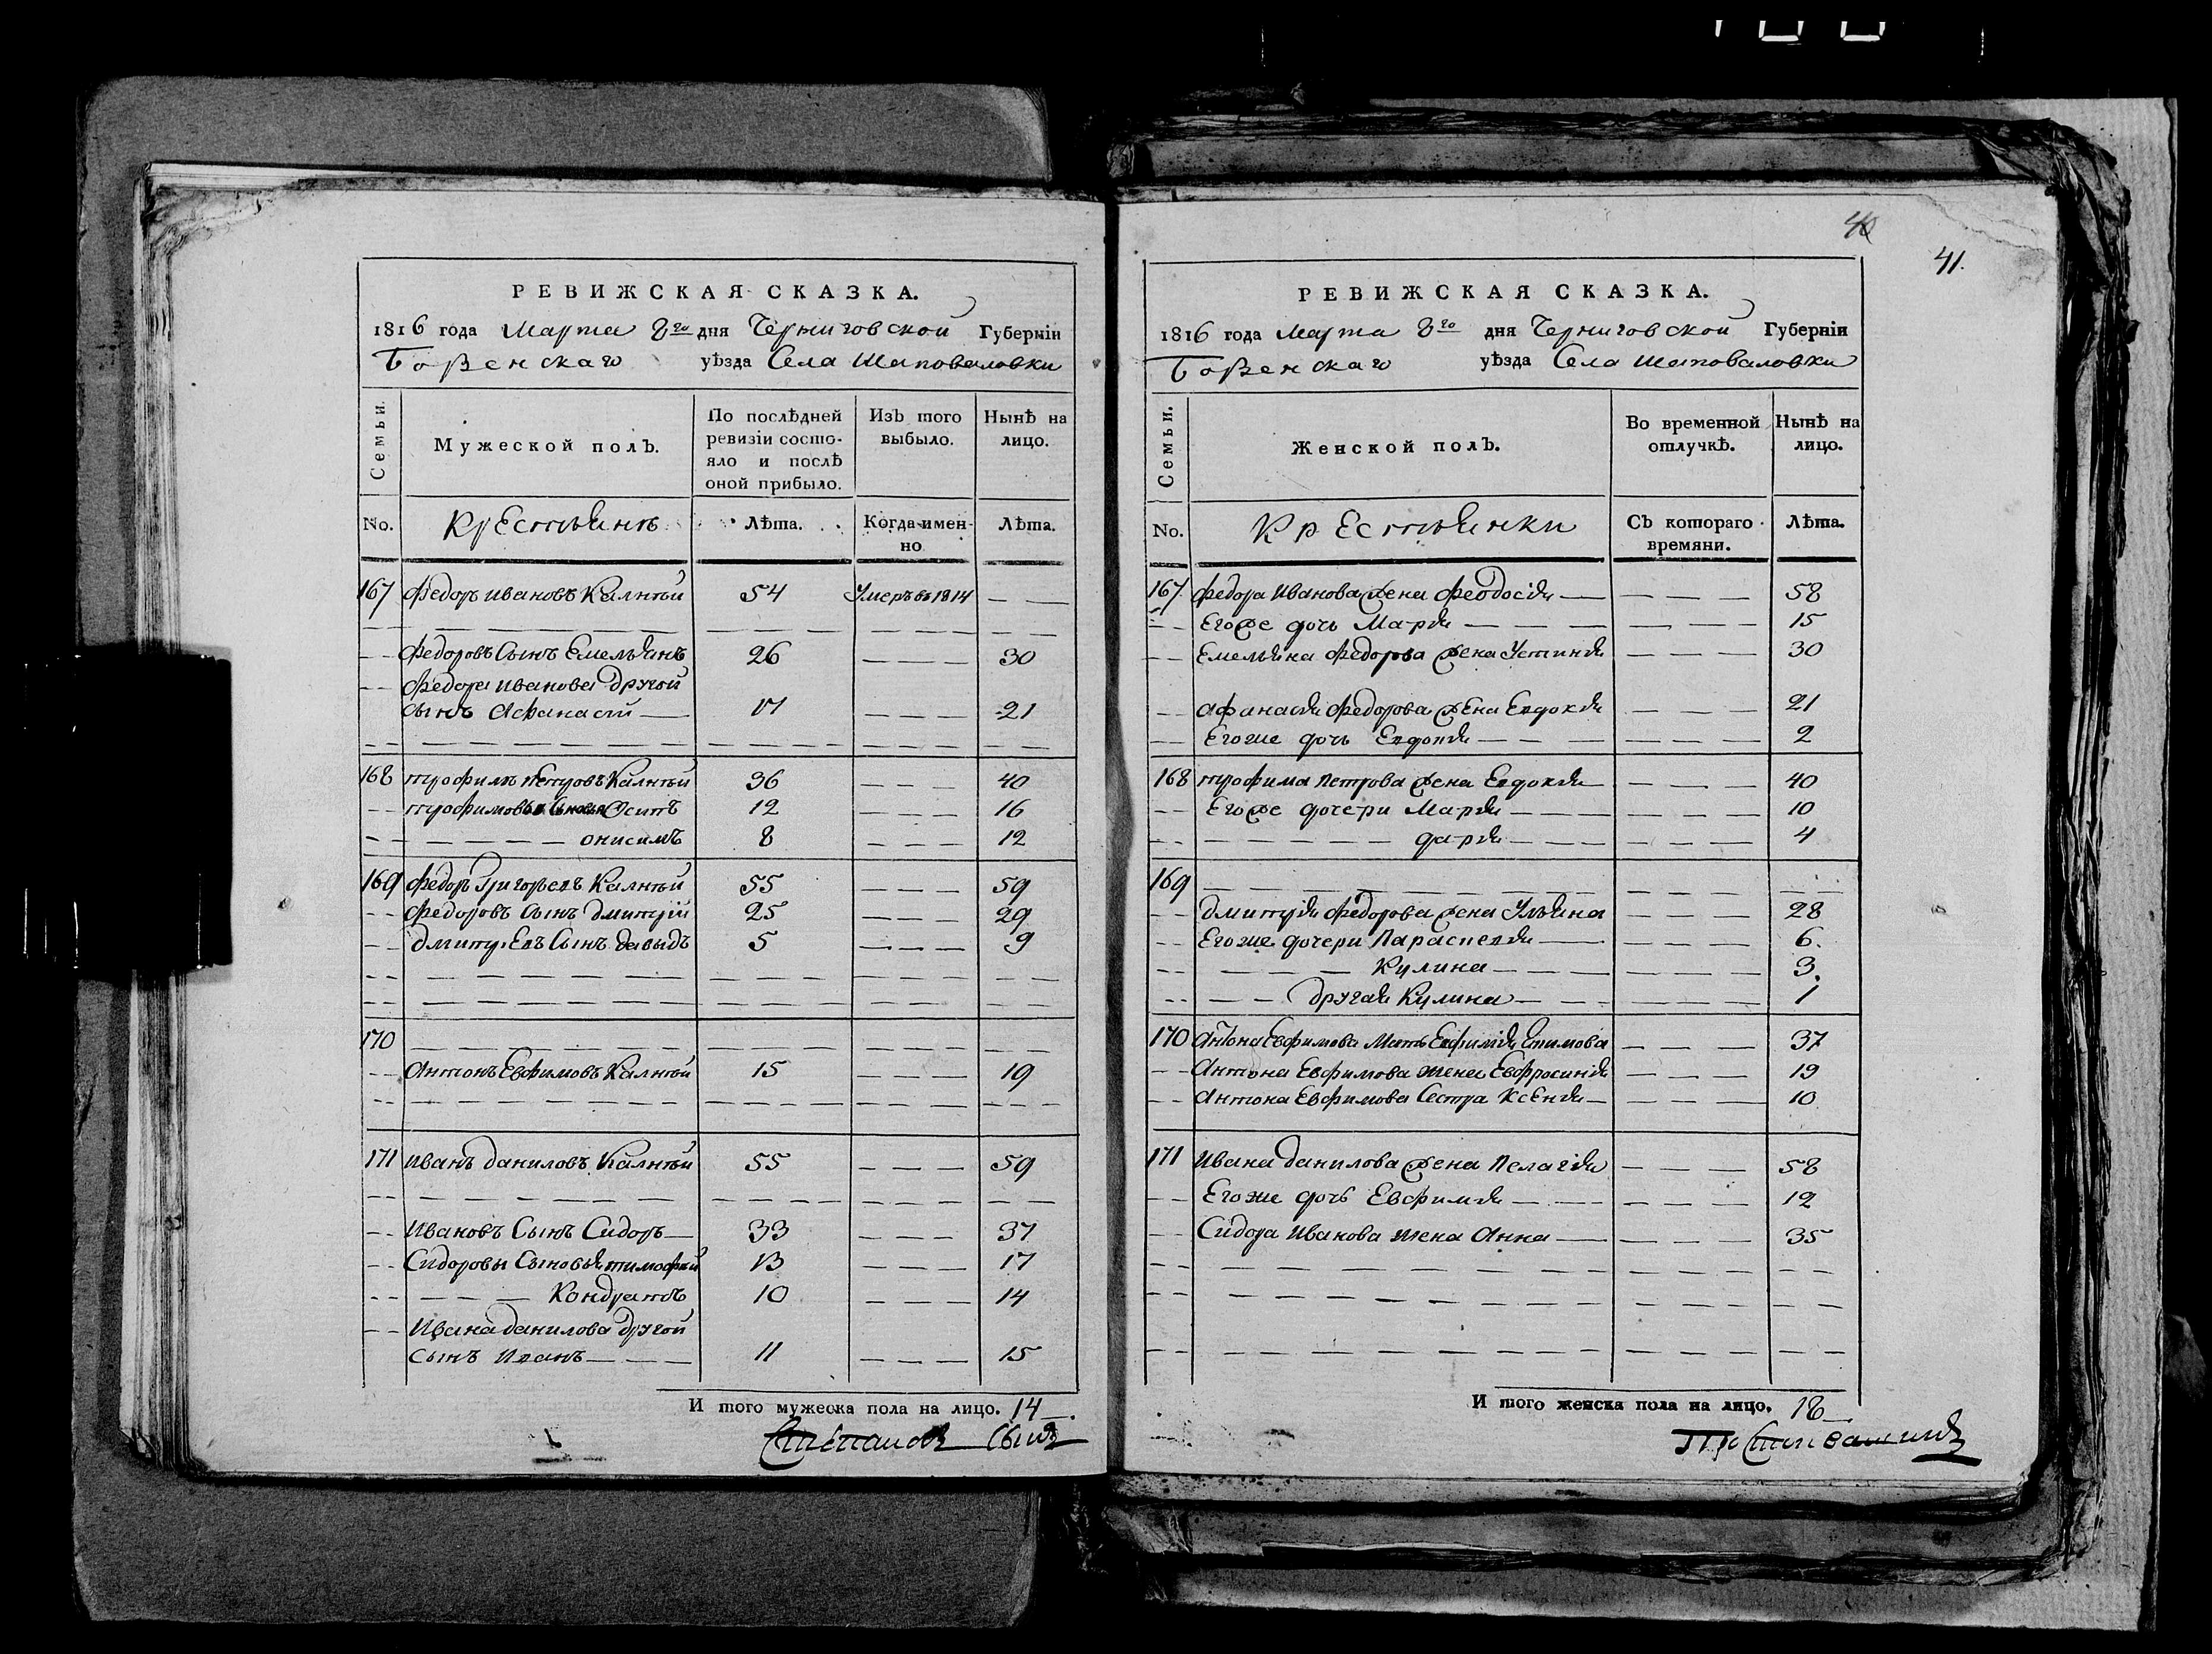 РЕВИЖСКАЯ СКАЗКА.
1816 года Марта 8го дня Черниговской Губерніи
Борзенскаго уѣзда Села Шаповаловки
Семьи. Мужеской полъ. По послѣдней ревизіи состояло и послѣ оной прибыло. Изъ того выбыло. Нынѣ на лицо.
No. Крестьянъ Лѣта. Когда именно Лѣта.
167 Федоръ Ивановъ Калнѣй 54 Умеръ въ 1814 — —
Федоровъ Сынъ Емельянъ 26 — — — 30
Федора Иванова другой
сынъ Афанасій 17 — — — 21
168 Трофимъ Петровъ Калнѣй 36 — — — 40
Трофимовы Сыновья Осипъ 12 — — — 16
Онисимъ 8 — — — 12
169 Федоръ Григорьевъ Калнѣй 55 — — — 59
Федоровъ Сынъ Дмитрій 25 — — — 29
Дмитріевъ Сынъ Давыдъ 5 — — — 9
170
Антонъ Евфимовъ Калнѣй 15 — — — 19
171 Иванъ Даниловъ Калнѣй 55 — — — 59
Ивановъ Сынъ Сидоръ 33 — — — 37
Сидоровы Сыновья Тимофей 13 — — — 17
Кондратъ 10 — — — 14
Ивана Данилова другой
Сынъ Иванъ 11 — — — 15
И того мужеска пола на лицо. 14
Степановъ Сынъ
41.
РЕВИЖСКАЯ СКАЗКА.
1816 года Марта 8го дня Черниговской Губерніи
Борзенскаго уѣзда Села Шаповаловки
Семьи. Женской полъ. Во временной отлучкѣ. Нынѣ на лицо.
No. Крестьянки Съ котораго времяни. Лѣта.
167 Федора Иванова жена Феодосія — — — 58
Егоже дочь Марія — — — 15
Емельяна Федорова жена Устинія — — — 30
Афанасія Федорова жена Евдокія — — — 21
Егоже дочь Евдокія — — — 2
168 Трофима Петрова жена Евдокія — — — 40
Егоже дочери Марія — — — 10
Дарія — — — 4
169
Дмитрія Федорова жена Ульяна — — — 28
Егоже дочери Параскевія — — — 6.
Кулина — — — 3.
другая Кулина — — — 1
170 Антона Евфимова Мать Евфимія Ефимова — — — 37
Антона Евфимова жена Евфросинія — — — 19
Антона Евфимова Сестра Ксенія — — — 10
171 Ивана Данилова жена Пелагія — — — 58
Егоже дочь Евфимія — — — 12
Сидора Иванова жена Анна — — — 35
И того женска пола на лицо. 18